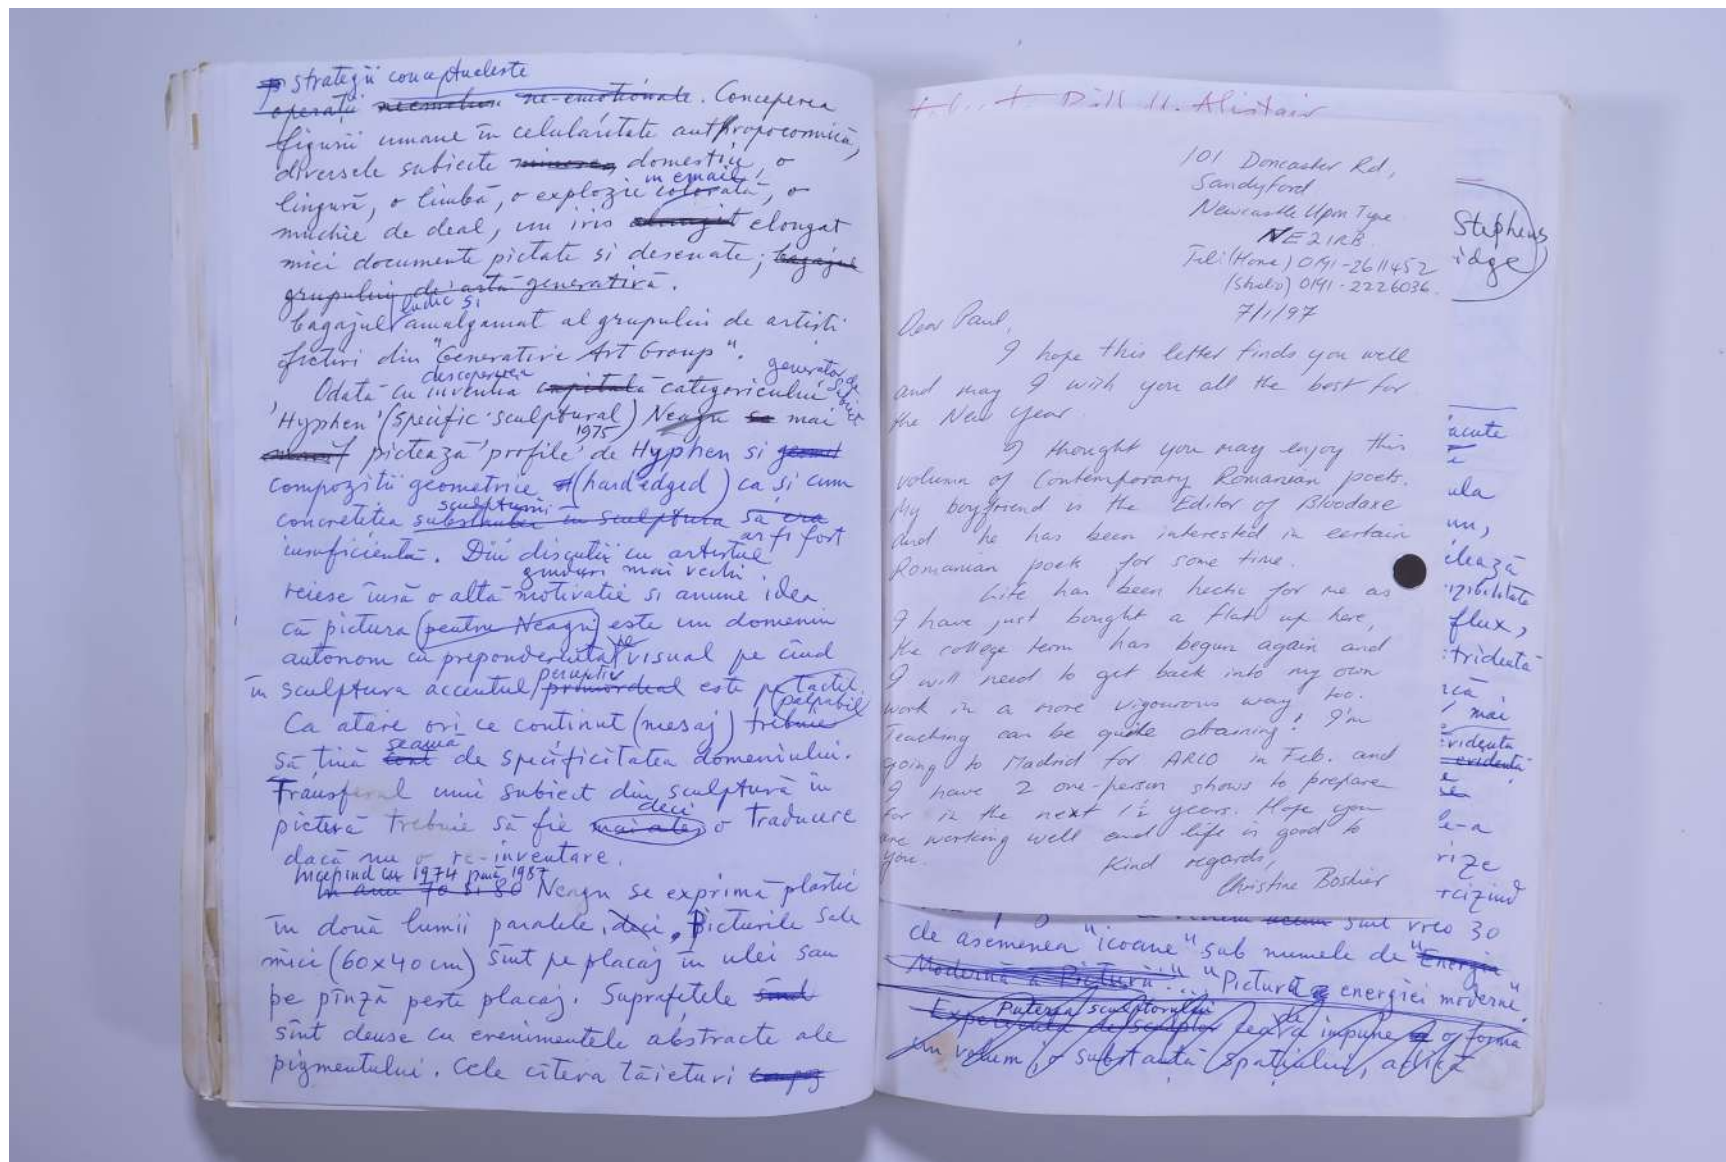 strategii conceptueliste
operații ne-emoționale. Conceperea
figurii umane în celularitate anthropocosmică,
diversele subiecte domestic, o
in email,
lingură, o limbă, o explozie colorată, o
muchie de deal, un iris alungit elongat
mici documente pictate si desenate; bagajul
grupului de artă generativă.
ludic si
bagajul amalgamat al grupului de artisti
fictivi din "Generative Art Group".
descoperirea generator de subiect
Odată cu inventia capitală categoricului
'Hyphen' (specific sculptural) Neagu se mai
1975
pictează 'profile' de Hyphen si
compozitii geometrice (hard edged) ca și cum
sculpturii
concretetea substantei in sculptura să era
ar fi fost
insuficientă. Din discutii cu artistul
ginduri mai vechi
reiese însă o altă motivatie si anume idea
că pictura (pentru Neagu) este un domeniu
autonom cu preponderentă pe visual pe cînd
perceptiv
în sculptura accentul primordeal este pe tactil.
(palpabil
Ca atare ori ce continut (mesaj) trebuie
seamă
să țină cont de specificitatea domeniului.
Transferul unui subiect din sculptură în
deci
pictură trebuie să fie mai ales o traducere
dacă nu o re-inventare.
Incepind cu 1974 pină 1987
în anii 70 si 80 Neagu se exprimă plastic
în două lumii paralele, deci. Picturile sale
mici (60x40 cm) sînt pe placaj în ulei sau
pe pînză peste placaj. Suprafetele sînt
sînt dense cu evenimentele abstracte ale
pigmentului. Cele cîteva tăieturi
Alistair
101 Doncaster Rd,
Sandyford
Newcastle Upon Tyne
NE2 1RB.
Tel: (Home) 0191-2611452
(Studio) 0191-2226036.
7/1/97
Dear Paul,
I hope this letter finds you well
and may I wish you all the best for
the New Year.
I thought you may enjoy this
volume of Contemporary Romanian poets.
My boyfriend is the Editor of Bloodaxe
and he has been interested in certain
Romanian poets for some time.
Life has been hectic for me as
I have just bought a flat up here,
the college term has begun again and
I will need to get back into my own
work in a more vigourous way too.
Teaching can be quite draining! I'm
going to Madrid for ARCO in Feb. and
I have 2 one-person shows to prepare
for in the next 1½ years. Hope you
are working well and life is good to
you.
Kind regards,
Christine Boshier
Stephens
idge
acute
ula
un,
ilează
izibilitate
flux,
tridentă
rcă,
mai
evidenta
evidentă
le-a
rize
rcizind
sînt vreo 30
de asemenea "icoane" sub numele de "Energia
Modernă a Picturii"... "Pictura energiei moderne".
Puterea sculptorului
Experienta de sculptor de a impune o formă
un volum, o substantă spatiului, adică